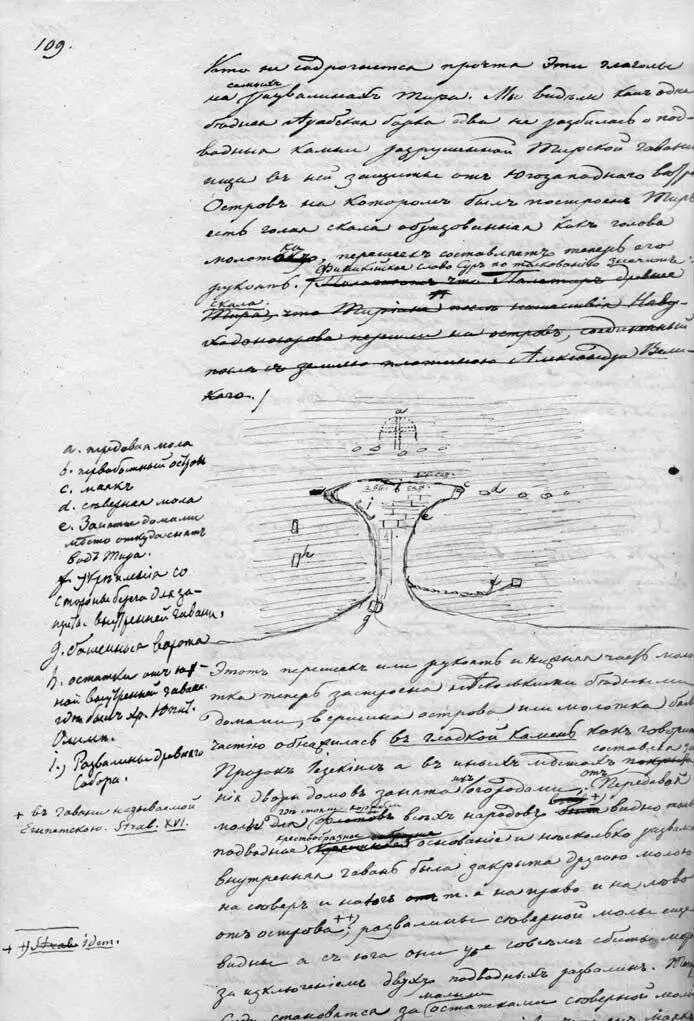 109.
Кто не содрогнется прочтя Эти глаголы
самыхъ
на развалинахъ Тира. Мы видѣли какъ одна
бѣдная Арабская барка едва не разбилась о под-
водные камни разрушенной Тирской гавани
ища въ ней защиты отъ Югозападнаго вѣтра
Островъ на которомъ былъ построенъ Тиръ
есть голая скала образованная какъ голова
молотка, перешеекъ составляетъ теперь его
Финикійское слово Суръ по толкованію значитъ
рукоять.
скала.
Тира, что Тиріане послѣ нашествія Наву-
ходоносора перешли на островъ, соединенный
съ землею плотиною Александра Вели-
каго.
a
c
d
e
i
h
f
g
a. передовая мола
b. первобытный островъ
c. маякъ
d. сѣверная мола
e. Занятое домами
мѣсто откуда снятъ
видъ Тира.
f. Укрѣпленія со
стороны берега для за-
щиты внутренней гавани.
g. башенныя ворота
h. остатки отъ юж-
ной внутренней гавани
гдѣ былъ хр. Юпит.
Олимп.
i.) Развалины древняго
Собора.
+ въ гавани называемой
Египетскою. Strab. XVI.
++) Strab. idem.
Этотъ перешеекъ или рукоять и нижняя часть моло-
тка теперь застроена нѣсколькими бѣдными
домами, вершина острова или молотка боль
частію обнажилась въ гладкой камень какъ говоритъ
Пророкъ Іезекіиль а въ иныхъ мѣстахъ
нія дворы домовъ занята огородами. отъ Передовой
молы для всѣхъ народовъ видно только
гдѣ стояли корабли
крестообразное
подводное основаніе и нѣсколько развалинъ
внутренняя гавань была закрыта другою молою
на сѣверъ и на югъ т. е. на право и на лѣво
отъ острова ++; развалины сѣверной молы еще
видны а съ юга они уже совсѣмъ сбиты моремъ
за изключеніемъ двухъ подводныхъ развалинъ.
малыми
становятся за остатками сѣверной молы